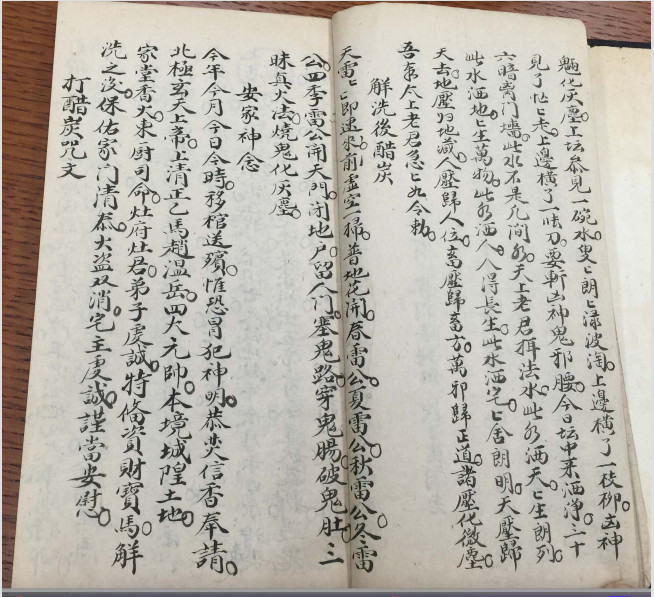 魑化灰塵。上坛叅見一碗水。叟〻朗〻渌波淘。上邊橫了一枝柳。凶神
見了忙〻走。上邊橫了一味刀。要斬凶神鬼邪腰。今日坛中来洒净。三十
六暗賣门墻。此水不是凡间水。天上老君洱法水。此水洒天〻生朗列
此水洒地〻生萬物。此水洒人〻得長生。此水洒宅〻舍朗明。天壓歸
天去地壓归地藏。人壓歸人位。畜壓歸畜方。萬邪歸正道。諸壓化微塵
吾奉太上老君急〻如令勅。
解洗後醋炭
天雷〻〻即速來。前虚空一掃。普地花開。春雷公夏雷公秋雷公冬雷
公。四季雷公開天門。闭地户留人门。塞鬼路。穿鬼腸。破鬼肚。三
昧真火法燒鬼化灰塵。
安家神念
今年今月今日今時。移棺送殯。惟恐冒犯神明。恭焚信香奉請。
北極玄天上帝。上清正乙馬趙溫岳。四大元帥。本境城隍土地。
家堂香火。東厨司命。灶府灶君。弟子虔誠。特俻資財寶馬。解
洗之後。保佑家门清泰。火盗双消。宅主虔誠。謹當安慰。
打醋炭咒文